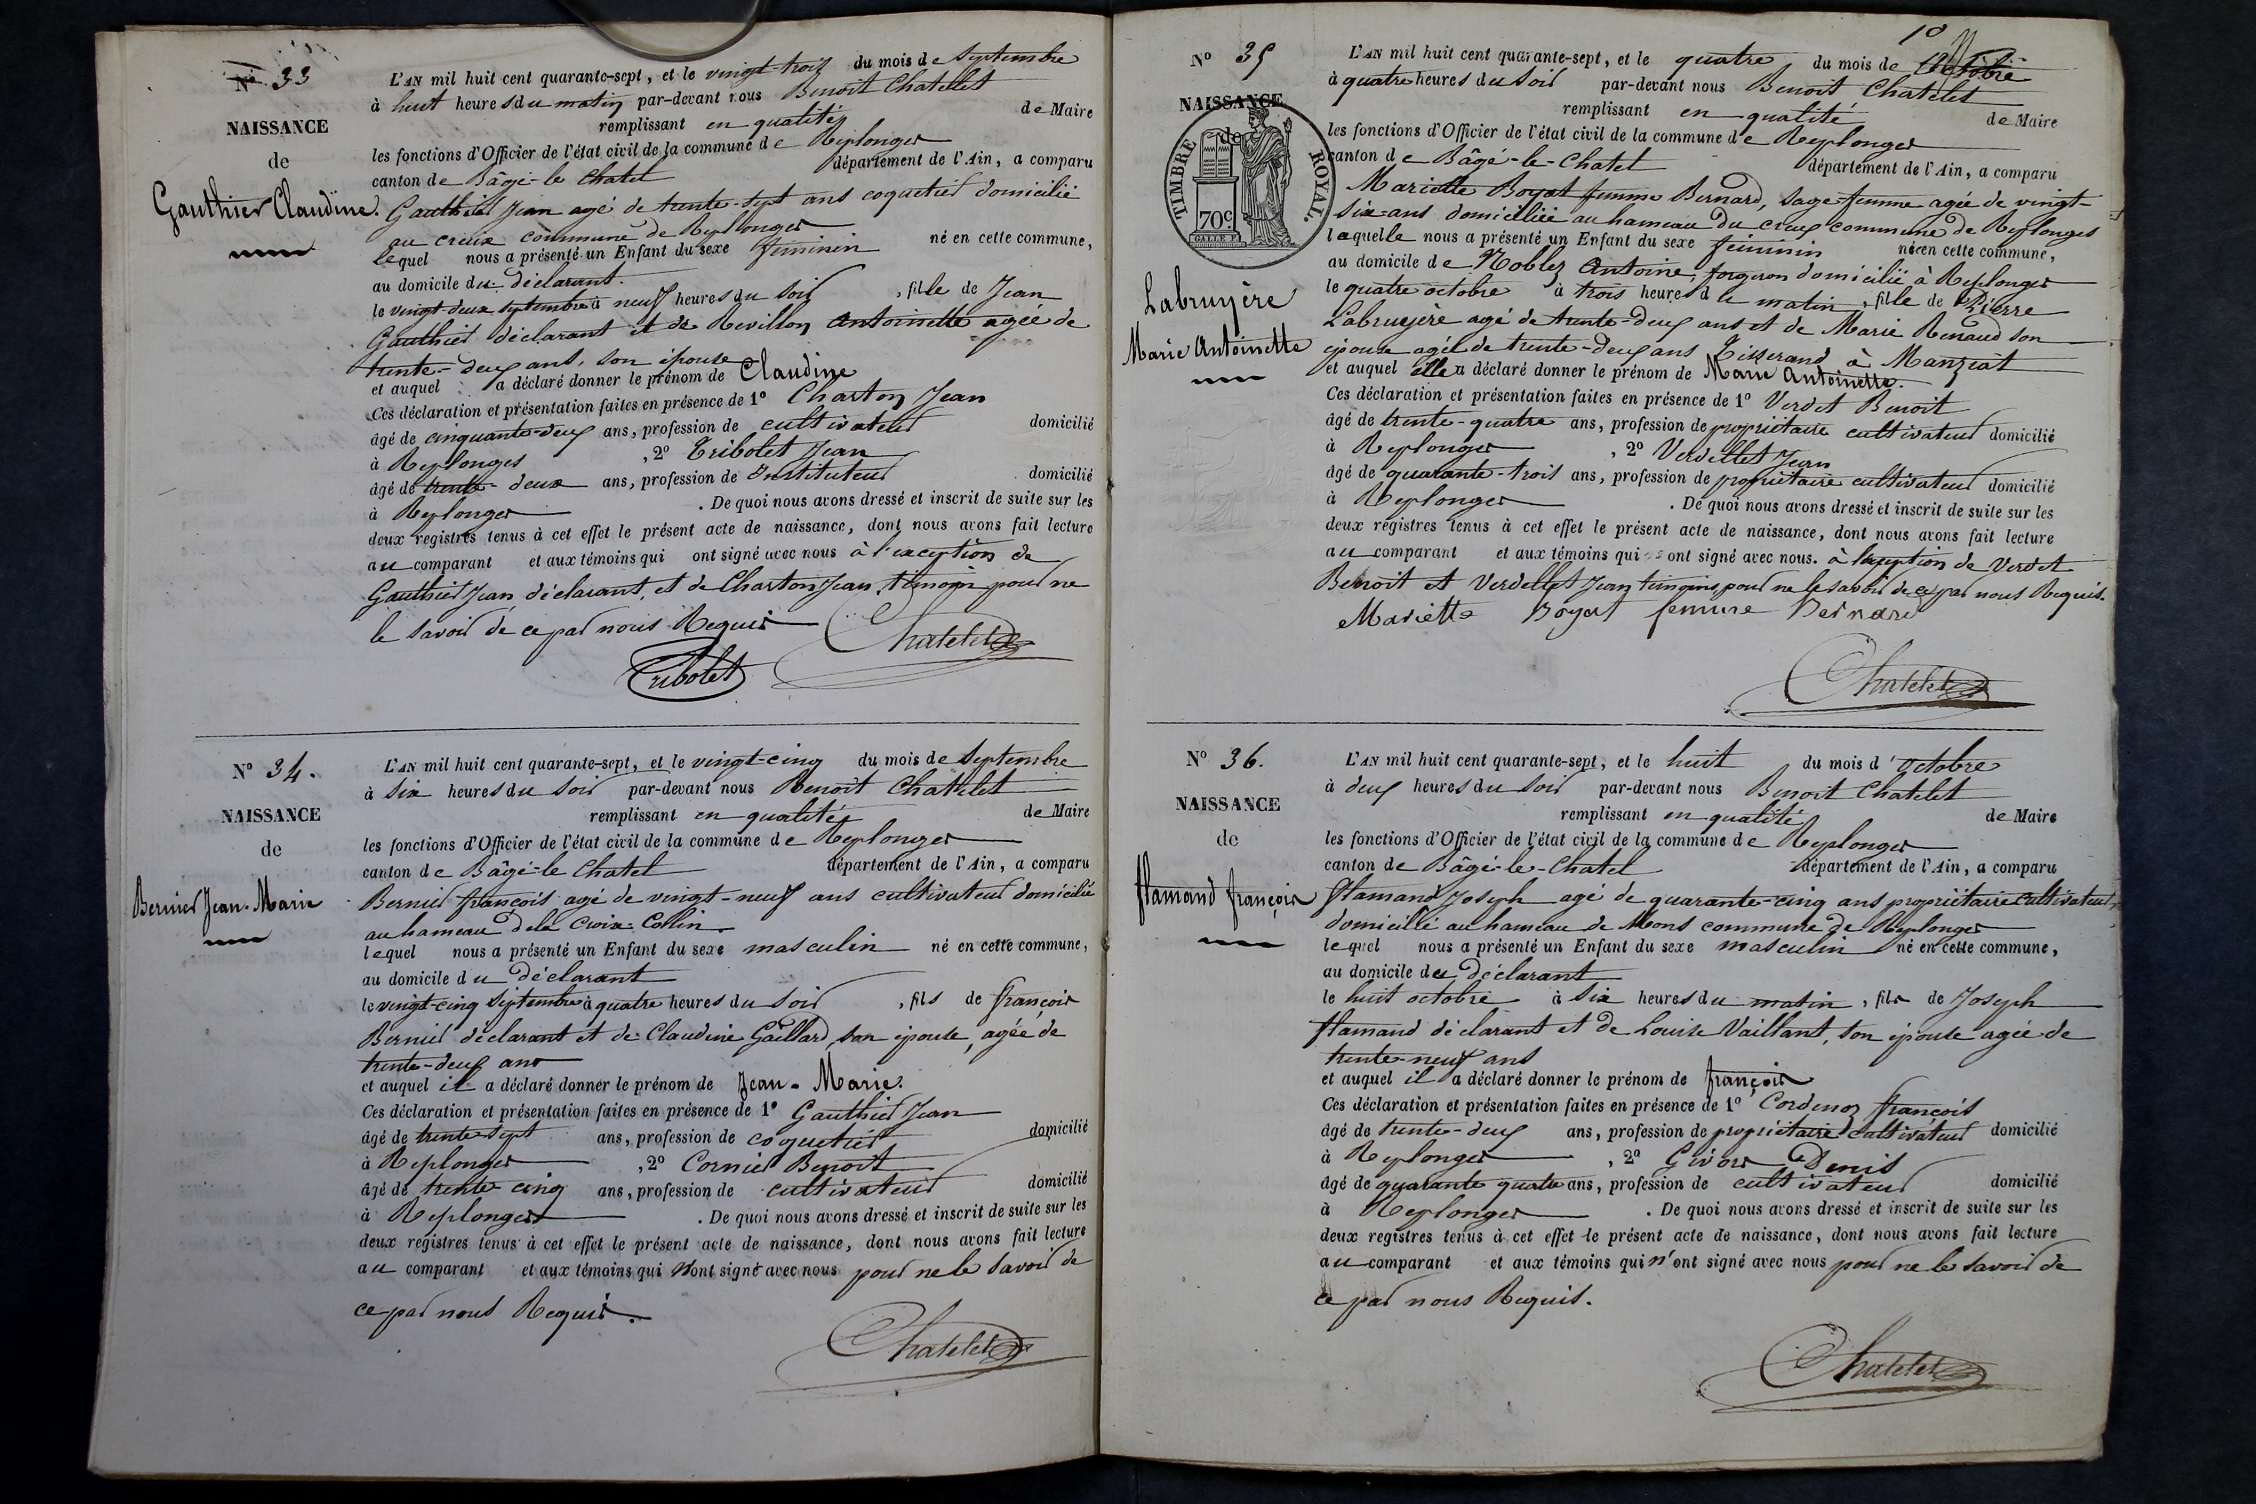 N° 33
NAISSANCE
de
Gauthier Claudine.
L'AN mil huit cent quarante-sept, et le vingt-trois du mois de Septembre
à huit heures du matin par-devant nous Benoit Chatelet
remplissant en qualité de Maire
les fonctions d'Officier de l'état civil de la commune de Replonges
canton de Bâgé-le Chatel département de l'Ain, a comparu
Gauthier Jean agé de trente-sept ans coquetier domicilié
au creux commune de Replonges
lequel nous a présenté un Enfant du sexe féminin né en cette commune,
au domicile du déclarant.
le vingt-deux septembre à neuf heures du Soir, fille de Jean
Gauthier déclarant et de Revillon Antoinette agée de
trente-deux ans, son épouse
et auquel a déclaré donner le prénom de Claudine
Ces déclaration et présentation faites en présence de 1° Charton Jean
âgé de cinquante-deux ans, profession de cultivateur domicilié
à Replonges, 2° Tribolet Jean
âgé de trente-deux ans, profession de Instituteur domicilié
à Replonges. De quoi nous avons dressé et inscrit de suite sur les
deux registres tenus à cet effet le présent acte de naissance, dont nous avons fait lecture
au comparant et aux témoins qui ont signé avec nous à l'exception de
Gauthier Jean déclarant, et de Charton Jean, témoin pour ne
le savoir de ce par nous Requis
Chatelet
Tribolet
N° 34.
NAISSANCE
de
Bernier Jean-Marie
L'AN mil huit cent quarante-sept, et le vingt-cinq du mois de Septembre
à Six heures du Soir par-devant nous Benoit Chatelet
remplissant en qualité de Maire
les fonctions d'Officier de l'état civil de la commune de Replonges
canton de Bâgé-le Chatel département de l'Ain, a comparu
Bernier françois agé de vingt-neuf ans cultivateur domicilié
au hameau de la Croix-Collin.
lequel nous a présenté un Enfant du sexe masculin né en cette commune,
au domicile du déclarant
le vingt-cinq Septembre à quatre heures du Soir, fils de françois
Bernier déclarant et de Claudine Gaillard, son épouse, agée de
trente-deux ans
et auquel il a déclaré donner le prénom de Jean-Marie.
Ces déclaration et présentation faites en présence de 1° Gauthier Jean
âgé de trente sept ans, profession de coquetier domicilié
à Replonges, 2° Cornier Benoit
âgé de trente-cinq ans, profession de cultivateur domicilié
à Replonges. De quoi nous avons dressé et inscrit de suite sur les
deux registres tenus à cet effet le présent acte de naissance, dont nous avons fait lecture
au comparant et aux témoins qui n'ont signé avec nous pour ne le Savoir de
ce par nous Requis.
Chatelet
10
N° 35
NAISSANCE
de
TIMBRE ROYAL
70c
Labruyère
Marie Antoinette
L'AN mil huit cent quarante-sept, et le quatre du mois de Octobre
à quatre heures du Soir par-devant nous Benoit Chatelet
remplissant en qualité de Maire
les fonctions d'Officier de l'état civil de la commune de Replonges
canton de Bâgé-le-Chatel département de l'Ain, a comparu
Mariette Boyat femme Bernard, Sage-femme agée de vingt-
Six-ans domiciliée au hameau du creux commune de Replonges
laquelle nous a présenté un Enfant du sexe féminin né en cette commune,
au domicile de Noblez Antoine, forgeron domicilié à Replonges
le quatre octobre à trois heures du matin, fille de Pierre
Labruyère agé de trente-deux ans et de Marie Renaud son
épouse agée de trente-deux ans Tisserand à Manziat
et auquel elle a déclaré donner le prénom de Marie Antoinette.
Ces déclaration et présentation faites en présence de 1° Verdet Benoit
âgé de trente-quatre ans, profession de propriétaire cultivateur domicilié
à Replonges, 2° Verdellet Jean
âgé de quarante-trois ans, profession de propriétaire cultivateur domicilié
à Replonges. De quoi nous avons dressé et inscrit de suite sur les
deux registres tenus à cet effet le présent acte de naissance, dont nous avons fait lecture
au comparant et aux témoins qui ont signé avec nous. à l'exception de Verdet
Benoit et Verdellet Jean témoins, pour ne le savoir de ce par nous Requis.
Mariette Boyat femme Bernard
Chatelet
N° 36.
NAISSANCE
de
flamand françois
L'AN mil huit cent quarante-sept, et le huit du mois d'octobre
à deux heures du Soir par-devant nous Benoit Chatelet
remplissant en qualité de Maire
les fonctions d'Officier de l'état civil de la commune de Replonges
canton de Bâgé-le-Chatel département de l'Ain, a comparu
flamand Joseph agé de quarante-cinq ans propriétaire cultivateur,
domicilié au hameau de Mons commune de Replonges
lequel nous a présenté un Enfant du sexe masculin né en cette commune,
au domicile du déclarant
le huit octobre à Six heures du matin, fils de Joseph
flamand déclarant et de Louise Vaillant, son épouse agée de
trente-neuf ans
et auquel il a déclaré donner le prénom de françois
Ces déclaration et présentation faites en présence de 1° Cordenoz françois
âgé de trente-deux ans, profession de propriétaire cultivateur domicilié
à Replonges, 2° Givors Denis
âgé de quarante quatre ans, profession de cultivateur domicilié
à Replonges. De quoi nous avons dressé et inscrit de suite sur les
deux registres tenus à cet effet le présent acte de naissance, dont nous avons fait lecture
au comparant et aux témoins qui n'ont signé avec nous pour ne le savoir de
ce par nous Requis.
Chatelet